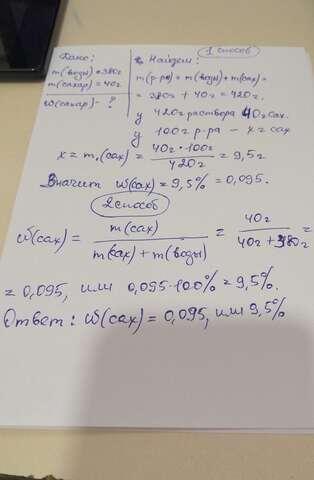 1 способ
Дано:
m(воды) = 380г
m(сахар) = 40г
ω(сахар) - ?
Найдем:
m(р-ра) = m(воды) + m(сах) =
= 380г + 40г = 420г.
у 420г раствора 40г сах.
у 100г р-ра – x г сах
x = m₁(сах) = 40г · 100г / 420г = 9,5г
Значит ω(сах) = 9,5% = 0,095.
2 способ
ω(сах) = m(сах) / m(сах) + m(воды) = 40г / 40г + 380г =
= 0,095, или 0,095·100% = 9,5%.
Ответ: ω(сах) = 0,095, или 9,5%